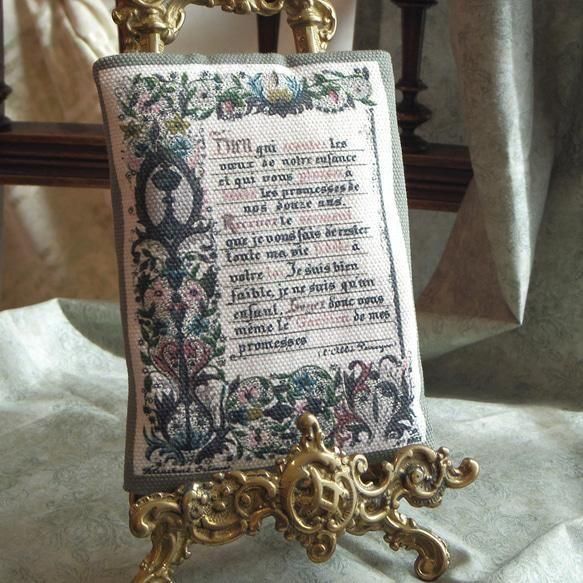 Dieu qui écoutez les
vœux de notre enfance
et qui vous à
les promesses de
nos douze ans.
Recevez le serment
que je vous fais de rester
toute ma vie fidèle à
votre loi. Je suis bien
faible, je ne suis qu'un
enfant, Soyez donc vous
même le Gardien de mes
promesses